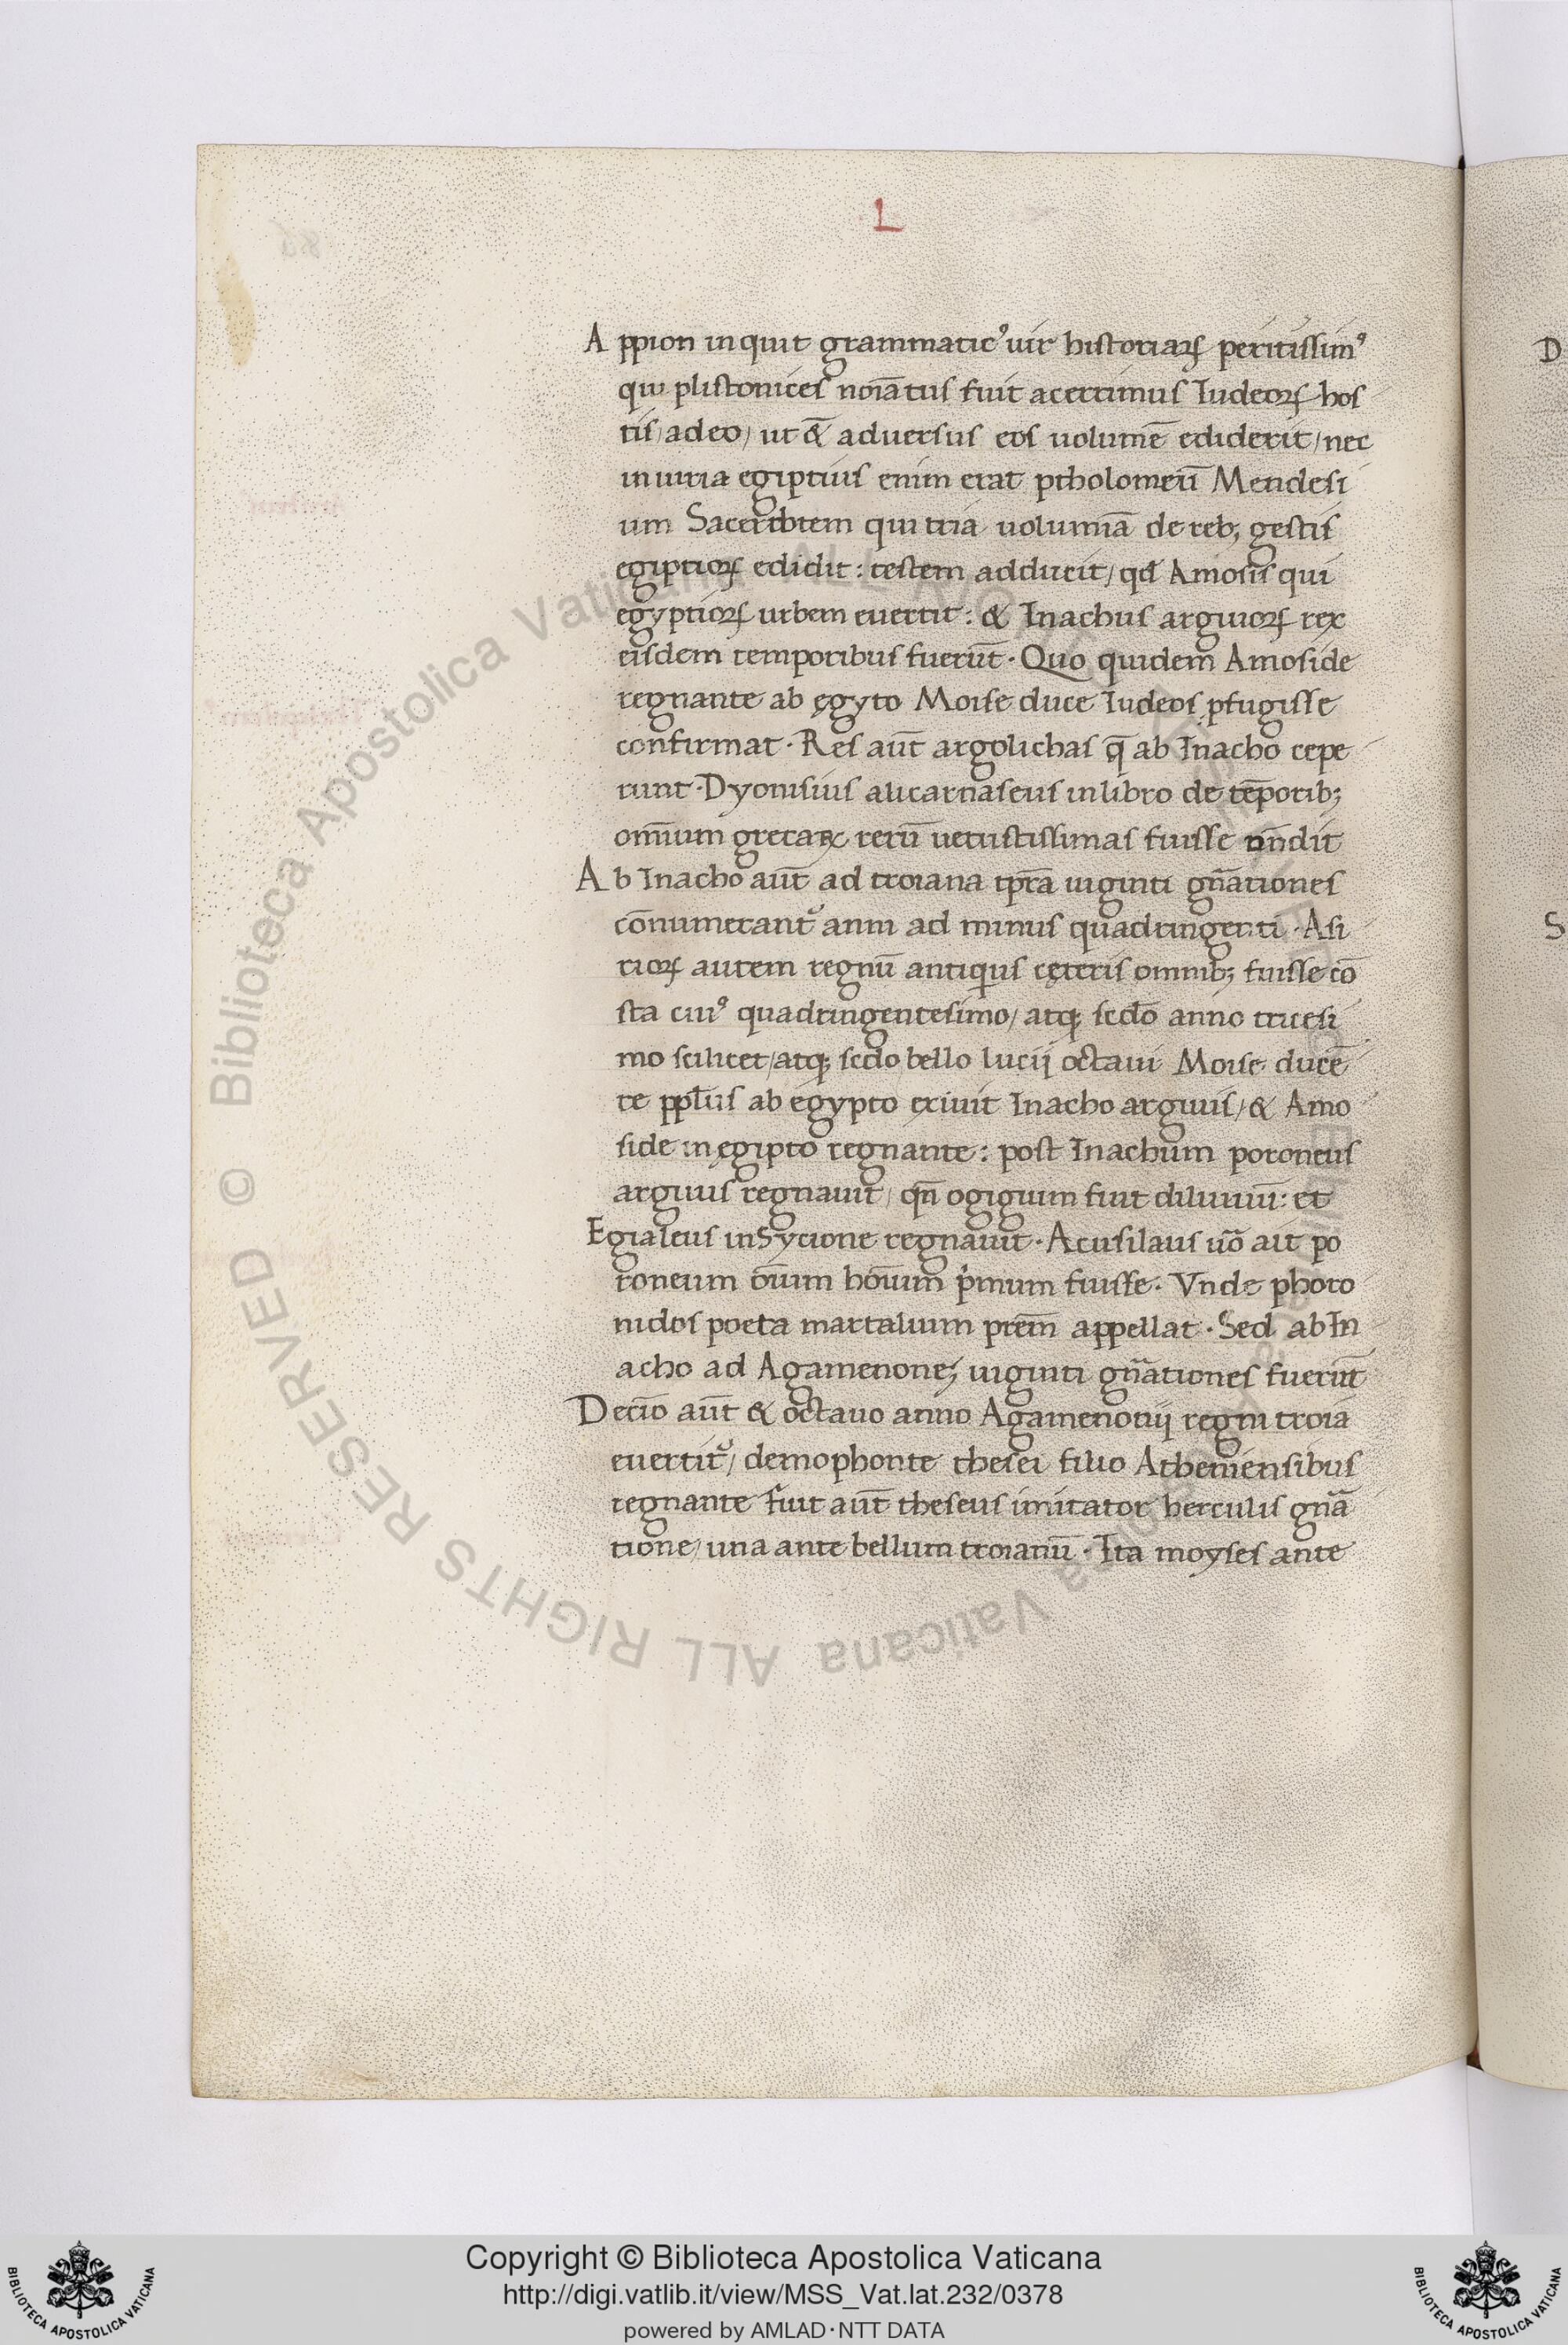 L
Appion inquit grammaticꝰ uir historiaꝝ peritissimꝰ
qui plistonices noiātus fuit acerrimus Iudeoꝝ hos
tis/ adeo/ ut &̄ aduersus eos uolumē ediderit/ nec
iniuria egiptius enim erat ptholomeū Mendesi
um Sacerdotem qui tria uolumīa de reb; gestis
egiptioꝝ edidit: testem adducit/ qđ Amosis qui
egyptioꝝ urbem euertit: & Inachus arguioꝝ rex
eisdem temporibus fuerūt · Quo quidem Amoside
regnante ab ęgyto Moise duce Iudeos ꝓfugisse
confirmat · Res aūt argolichas q̄ ab Inacho cepe
runt · Dyonisius alicarnaseus in libro de tēporib;
omīum grecaꝝ rerū uetustissimas fuisse
Ab Inacho aūt ad troiana tꝑa uiginti gn̄ationes
cōnumerant᷑ anni ad minus quadringenti · Asi
rioꝝ autem regnū antiquius cęteris omnib; fuisse cō
sta cuiꝰ quadringentesimo/ atq; scđo anno tricesi
mo scilicet/ atq; scđo bello lucij octaui Moise ducē
te ppl̄us ab egypto exiuit Inacho arguis/ & Amo
side in ęgipto regnante: post Inachum poroneus
arguus regnauit/ qn̄ ogigium fuit diluuiū: et
Egialeus in Sycione regnauit · Acusilaus uō ait po
roneum oīum hoīum pͥmum fuisse · Vnde phoro
nidos poeta martalium prēm appellat · Sed ab In
acho ad Agamenoneʒ uiginti gn̄ationes fuerūt
Deciō aūt & octauo anno Agamenonij regni troia
euertit᷑/ demophonte thesei filio Atheniensibus
regnante fuit aūt theseus imitator herculis gnā
tione/ una ante bellum troianū · Ita moyses ante
D
S
Copyright © Biblioteca Apostolica Vaticana
http://digi.vatlib.it/view/MSS_Vat.lat.232/0378
powered by AMLAD·NTT DATA
BIBLIOTECA APOSTOLICA VATICANA
BIBLIOTECA APOSTOLICA VATICANA
© Biblioteca Apostolica Vaticana ALL RIGHTS RESERVED